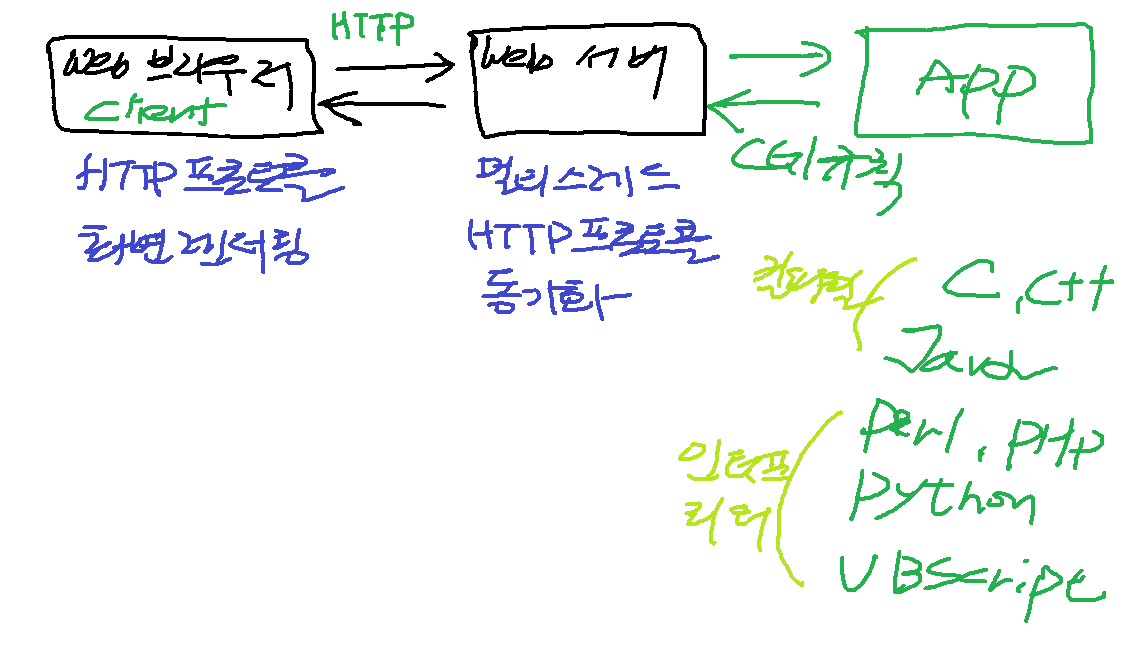 HTTP
Web 브라우저
Client
Web 서버
App
CGI규칙
HTTP프로토콜
화면 렌더링
멀티스레드
HTTP프로토콜
동기화
컴파일
C, C++
Java
인터프
리터
Perl, PHP
Python
VBScript